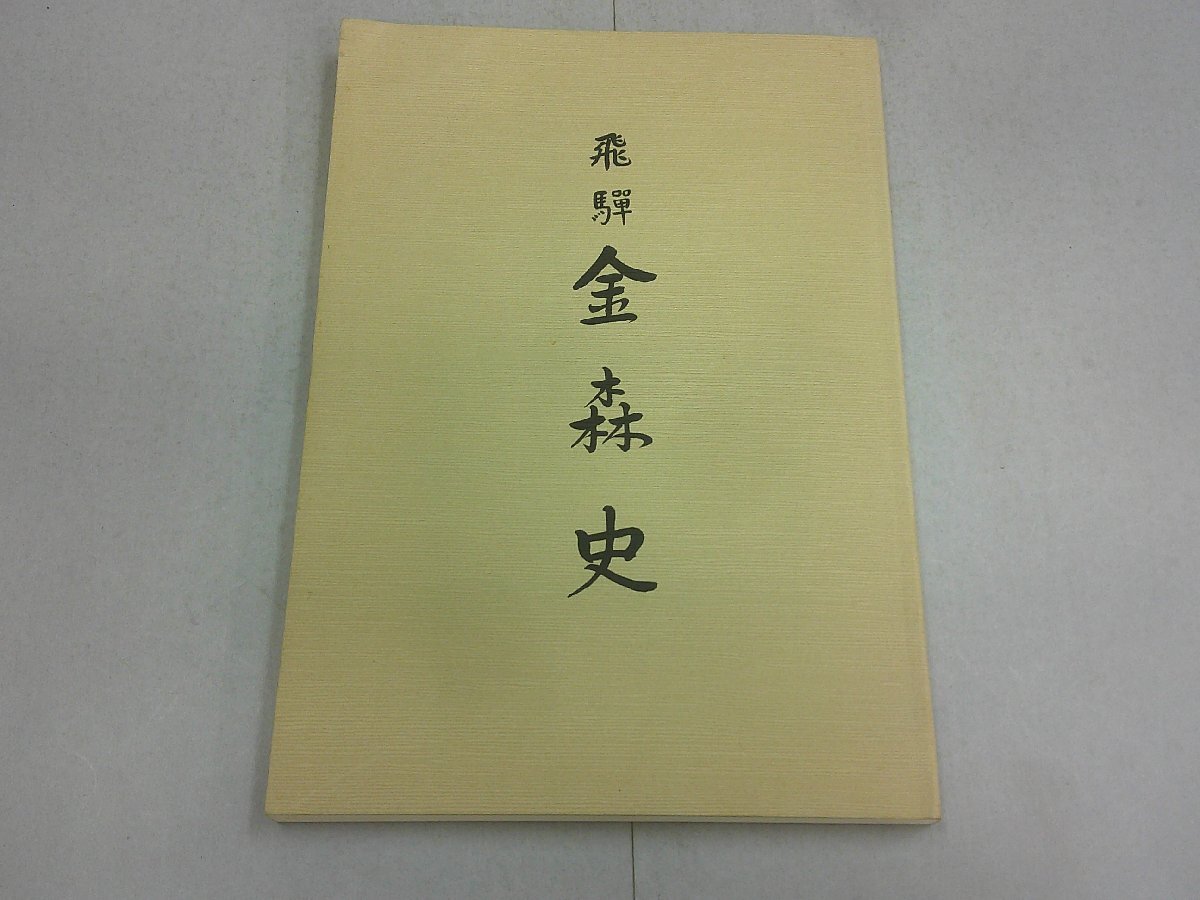 飛驒金森史